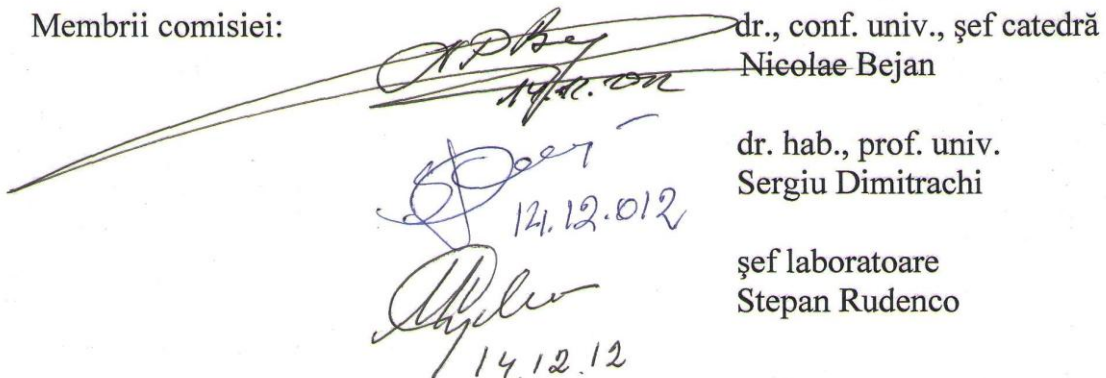 Membrii comisiei:
dr., conf. univ., şef catedră
Nicolae Bejan
14.12.2012
dr. hab., prof. univ.
Sergiu Dimitrachi
14.12.012
şef laboratoare
Stepan Rudenco
14.12.12